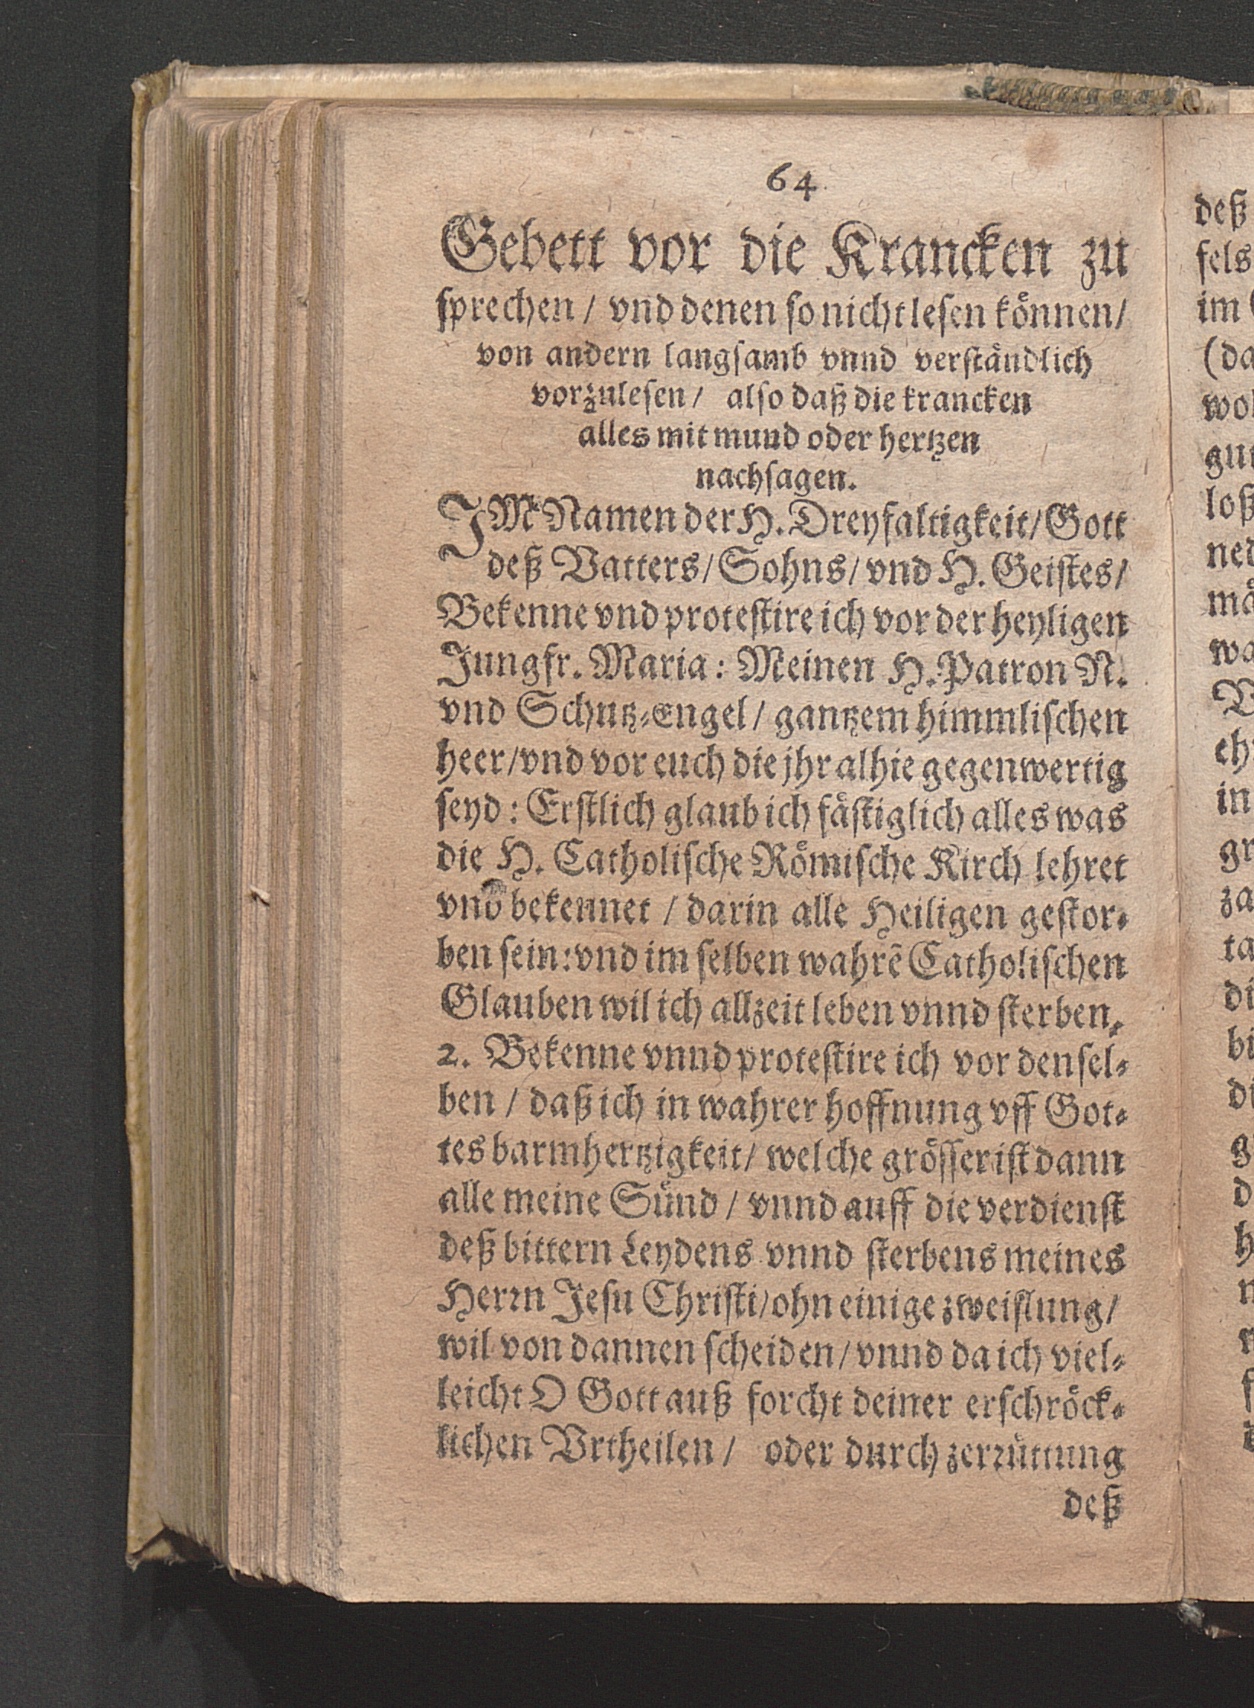 64
Gebett vor die Krancken zu
sprechen / vnd denen so nicht lesen können /
von andern langsamb vnnd verständlich
vorzulesen / also daß die krancken
alles mit mund oder hertzen
nachsagen.
IM Namen der H. Dreyfaltigkeit / Gott
deß Vatters / Sohns / vnd H. Geistes /
Bekenne vnd protestire ich vor der heyligen
Jungfr. Maria : Meinen H. Patron N.
vnd Schutz-Engel / gantzem himmlischen
heer / vnd vor euch die jhr alhie gegenwertig
seyd : Erstlich glaub ich fästiglich alles was
die H. Catholische Römische Kirch lehret
vnd bekennet / darin alle Heiligen gestor-
ben sein : vnd im selben wahrẽ Catholischen
Glauben wil ich allzeit leben vnnd sterben.
2. Bekenne vnnd protestire ich vor densel-
ben / daß ich in wahrer hoffnung vff Got-
tes barmhertzigkeit / welche grösser ist dann
alle meine Sünd / vnnd auff die verdienst
deß bittern Leydens vnnd sterbens meines
Herrn Jesu Christi / ohn einige zweiflung /
wil von dannen scheiden / vnnd da ich viel-
leicht O Gott auß forcht deiner erschröck-
lichen Vrtheilen / oder durch zerrüttung
deß
deß
fels
im
(da
wol
gun
loß
ned
mä
wa
V
eh
in
gr
za
ta
di
bu
di
g
d
h